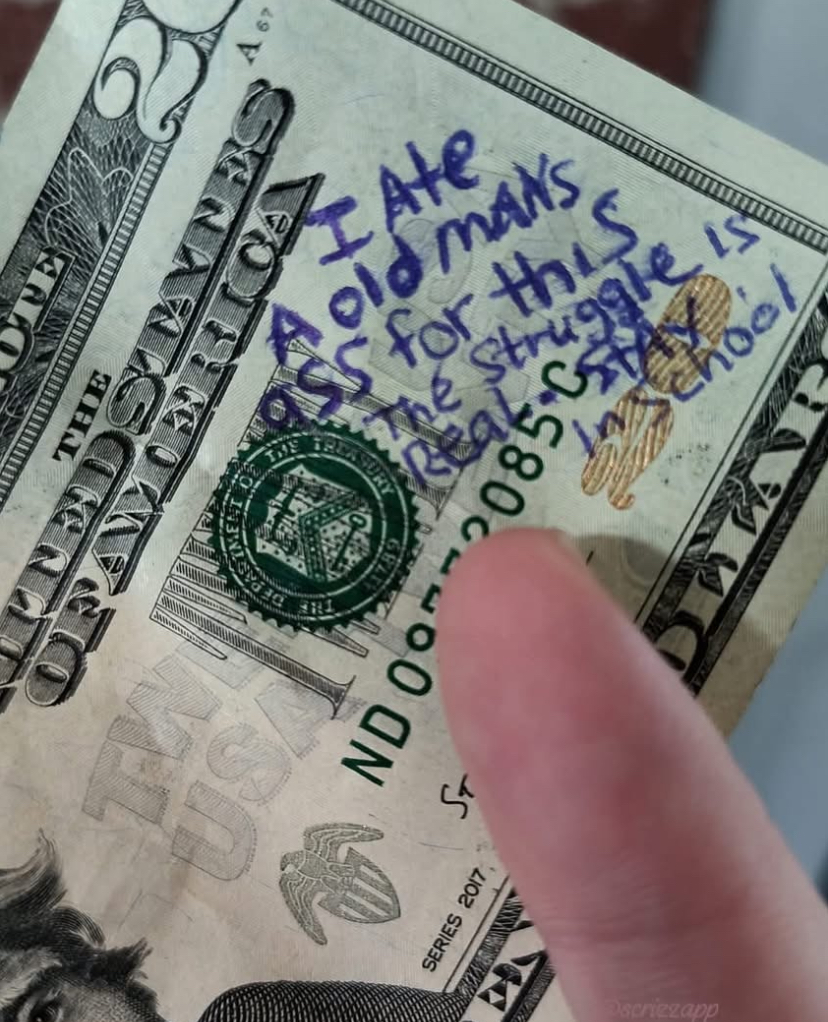 20
A 67
NOTE
THE
UNITED STATES
OF AMERICA
I Ate
A old mans
ass for this
The Struggle is
Real. Stay
In School
THE DEPARTMENT OF THE TREASURY
TWENTY
USA
SERIES 2017
@scriezapp